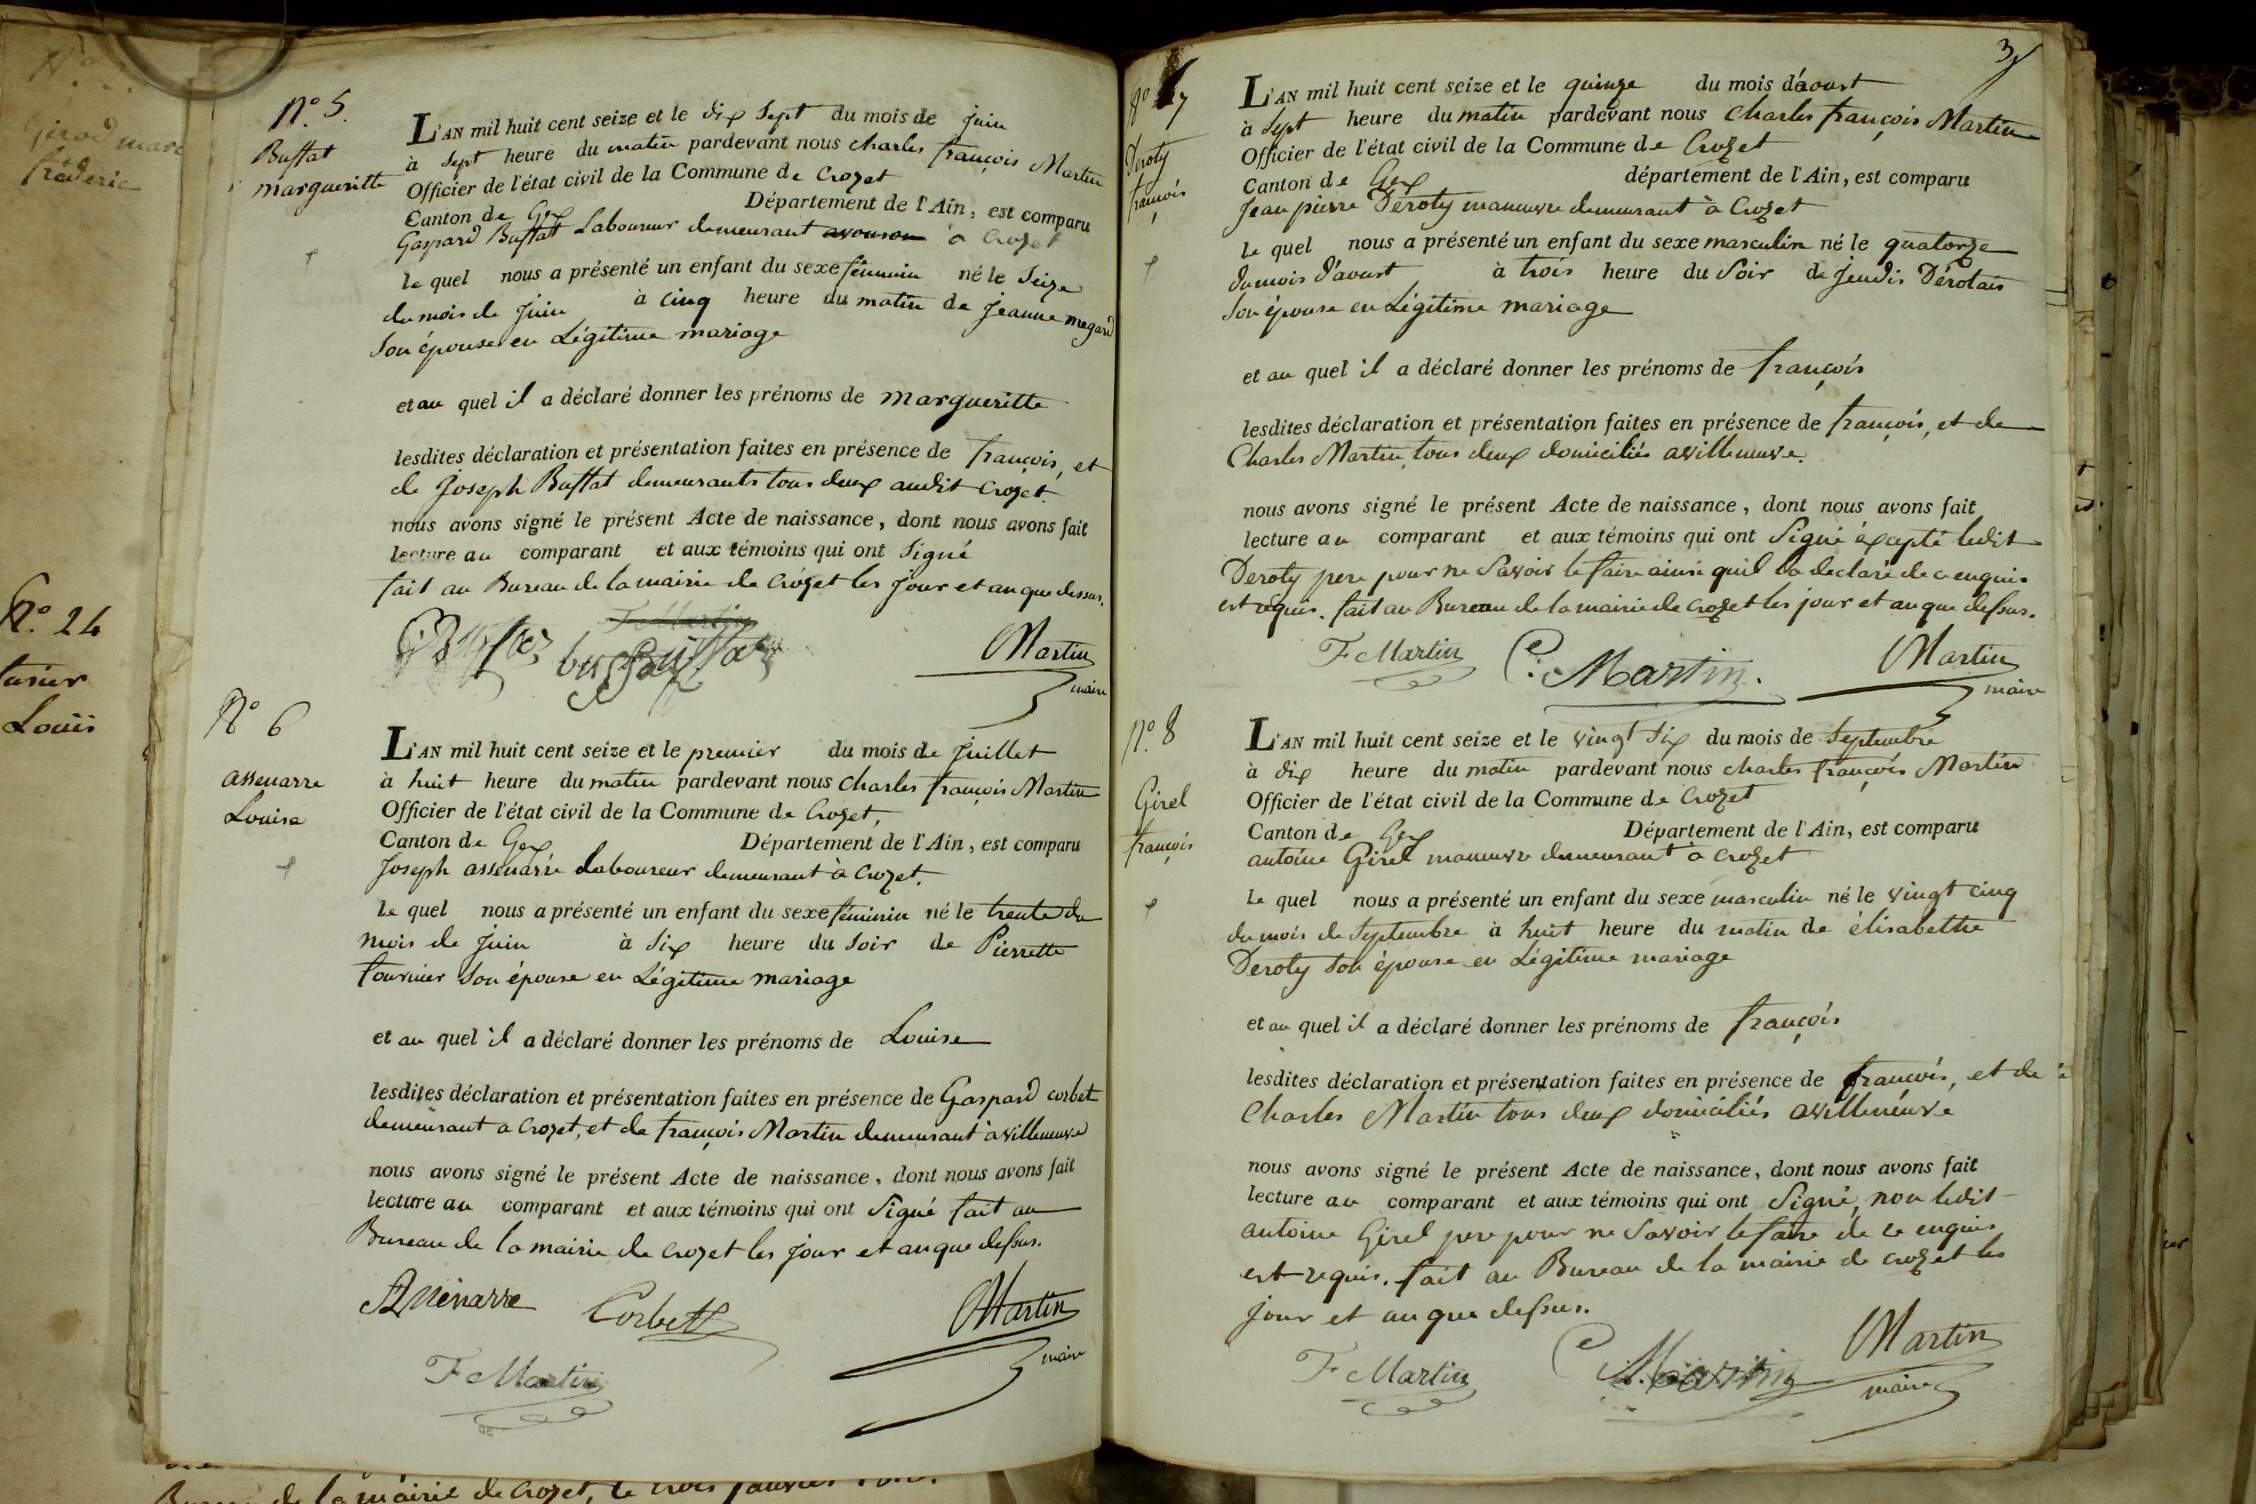 Girod marc
fréderic
N.° 24
Louis
N.° 5.
Buffat
margueritte
L'AN mil huit cent seize et le dix sept du mois de juin
à sept heure du matin pardevant nous charles françois Martin
Officier de l'état civil de la Commune de Crozet
Canton de Gex Département de l'Ain, est comparu
Gaspard Buffat Laboureur demeurant à Crozet
le quel nous a présenté un enfant du sexe féminin né le seize
du mois de juin à cinq heure du matin de jeanne megard
son épouse en Légitime mariage
et au quel il a déclaré donner les prénoms de margueritte
lesdites déclaration et présentation faites en présence de françois, et
de Joseph Buffat demeurants tous deux audit crozet.
nous avons signé le présent Acte de naissance, dont nous avons fait
lecture au comparant et aux témoins qui ont signé
fait au Bureau de la mairie de crozet les jour et an que dessus.
F Martin
Martin
maire
N° 6
assenarre
Louise
L'AN mil huit cent seize et le premier du mois de juillet
à huit heure du matin pardevant nous charles françois Martin
Officier de l'état civil de la Commune de Crozet,
Canton de Gex Département de l'Ain, est comparu
Joseph assenarre Laboureur demeurant à Crozet.
le quel nous a présenté un enfant du sexe féminin né le trente du
mois de juin à six heure du soir de Pierrette
fournier son épouse en Légitime mariage
et au quel il a déclaré donner les prénoms de Louise
lesdites déclaration et présentation faites en présence de Gaspard corbet
demeurant a crozet, et de françois Martin demeurant à villeneuve
nous avons signé le présent Acte de naissance, dont nous avons fait
lecture au comparant et aux témoins qui ont signé fait au
Bureau de la mairie de crozet les jour et an que dessus.
Corbett
Martin
maire
F Martin
3
N° 7
Deroty
françois
L'AN mil huit cent seize et le quinze du mois d'aoust
à sept heure du matin pardevant nous charles françois Martin
Officier de l'état civil de la Commune de Crozet
Canton de Gex département de l'Ain, est comparu
Jean pierre Deroty maneuvre demeurant à Crozet
le quel nous a présenté un enfant du sexe masculin né le quatorze
du mois d'aoust à trois heure du soir de Dérotais
son épouse en Légitime mariage
et au quel il a déclaré donner les prénoms de françois
lesdites déclaration et présentation faites en présence de françois, et de
Charles Martin, tous deux domiciliés a villeneuve.
nous avons signé le présent Acte de naissance, dont nous avons fait
lecture au comparant et aux témoins qui ont signé éxcepté ledit
Deroty pere pour ne savoir le faire ainsi quil la declaré de ce enquis
est requis. fait au Bureau de la mairie de crozet les jour et an que dessus.
F Martin
C. Martin.
Martin
maire
N.° 8
Girel
françois
L'AN mil huit cent seize et le vingt six du mois de septembre
à dix heure du matin pardevant nous charles françois Martin
Officier de l'état civil de la Commune de Crozet
Canton de Gex Département de l'Ain, est comparu
antoine Girel maneuvre demeurant à crozet
le quel nous a présenté un enfant du sexe masculin né le vingt cinq
du mois de septembre à huit heure du matin de élisabethe
Deroty son épouse en Légitime mariage
et au quel il a déclaré donner les prénoms de françois
lesdites déclaration et présentation faites en présence de françois, et de
Charles Martin tous deux domiciliés a villeneuve
nous avons signé le présent Acte de naissance, dont nous avons fait
lecture au comparant et aux témoins qui ont signé, non ledit
antoine Girel pere pour ne savoir le faire de ce enquis
est requis. fait au Bureau de la mairie de crozet les
jour et an que dessus.
F Martin
C. Martin
Martin
maire
de la mairie de Crozet, le trois janvier